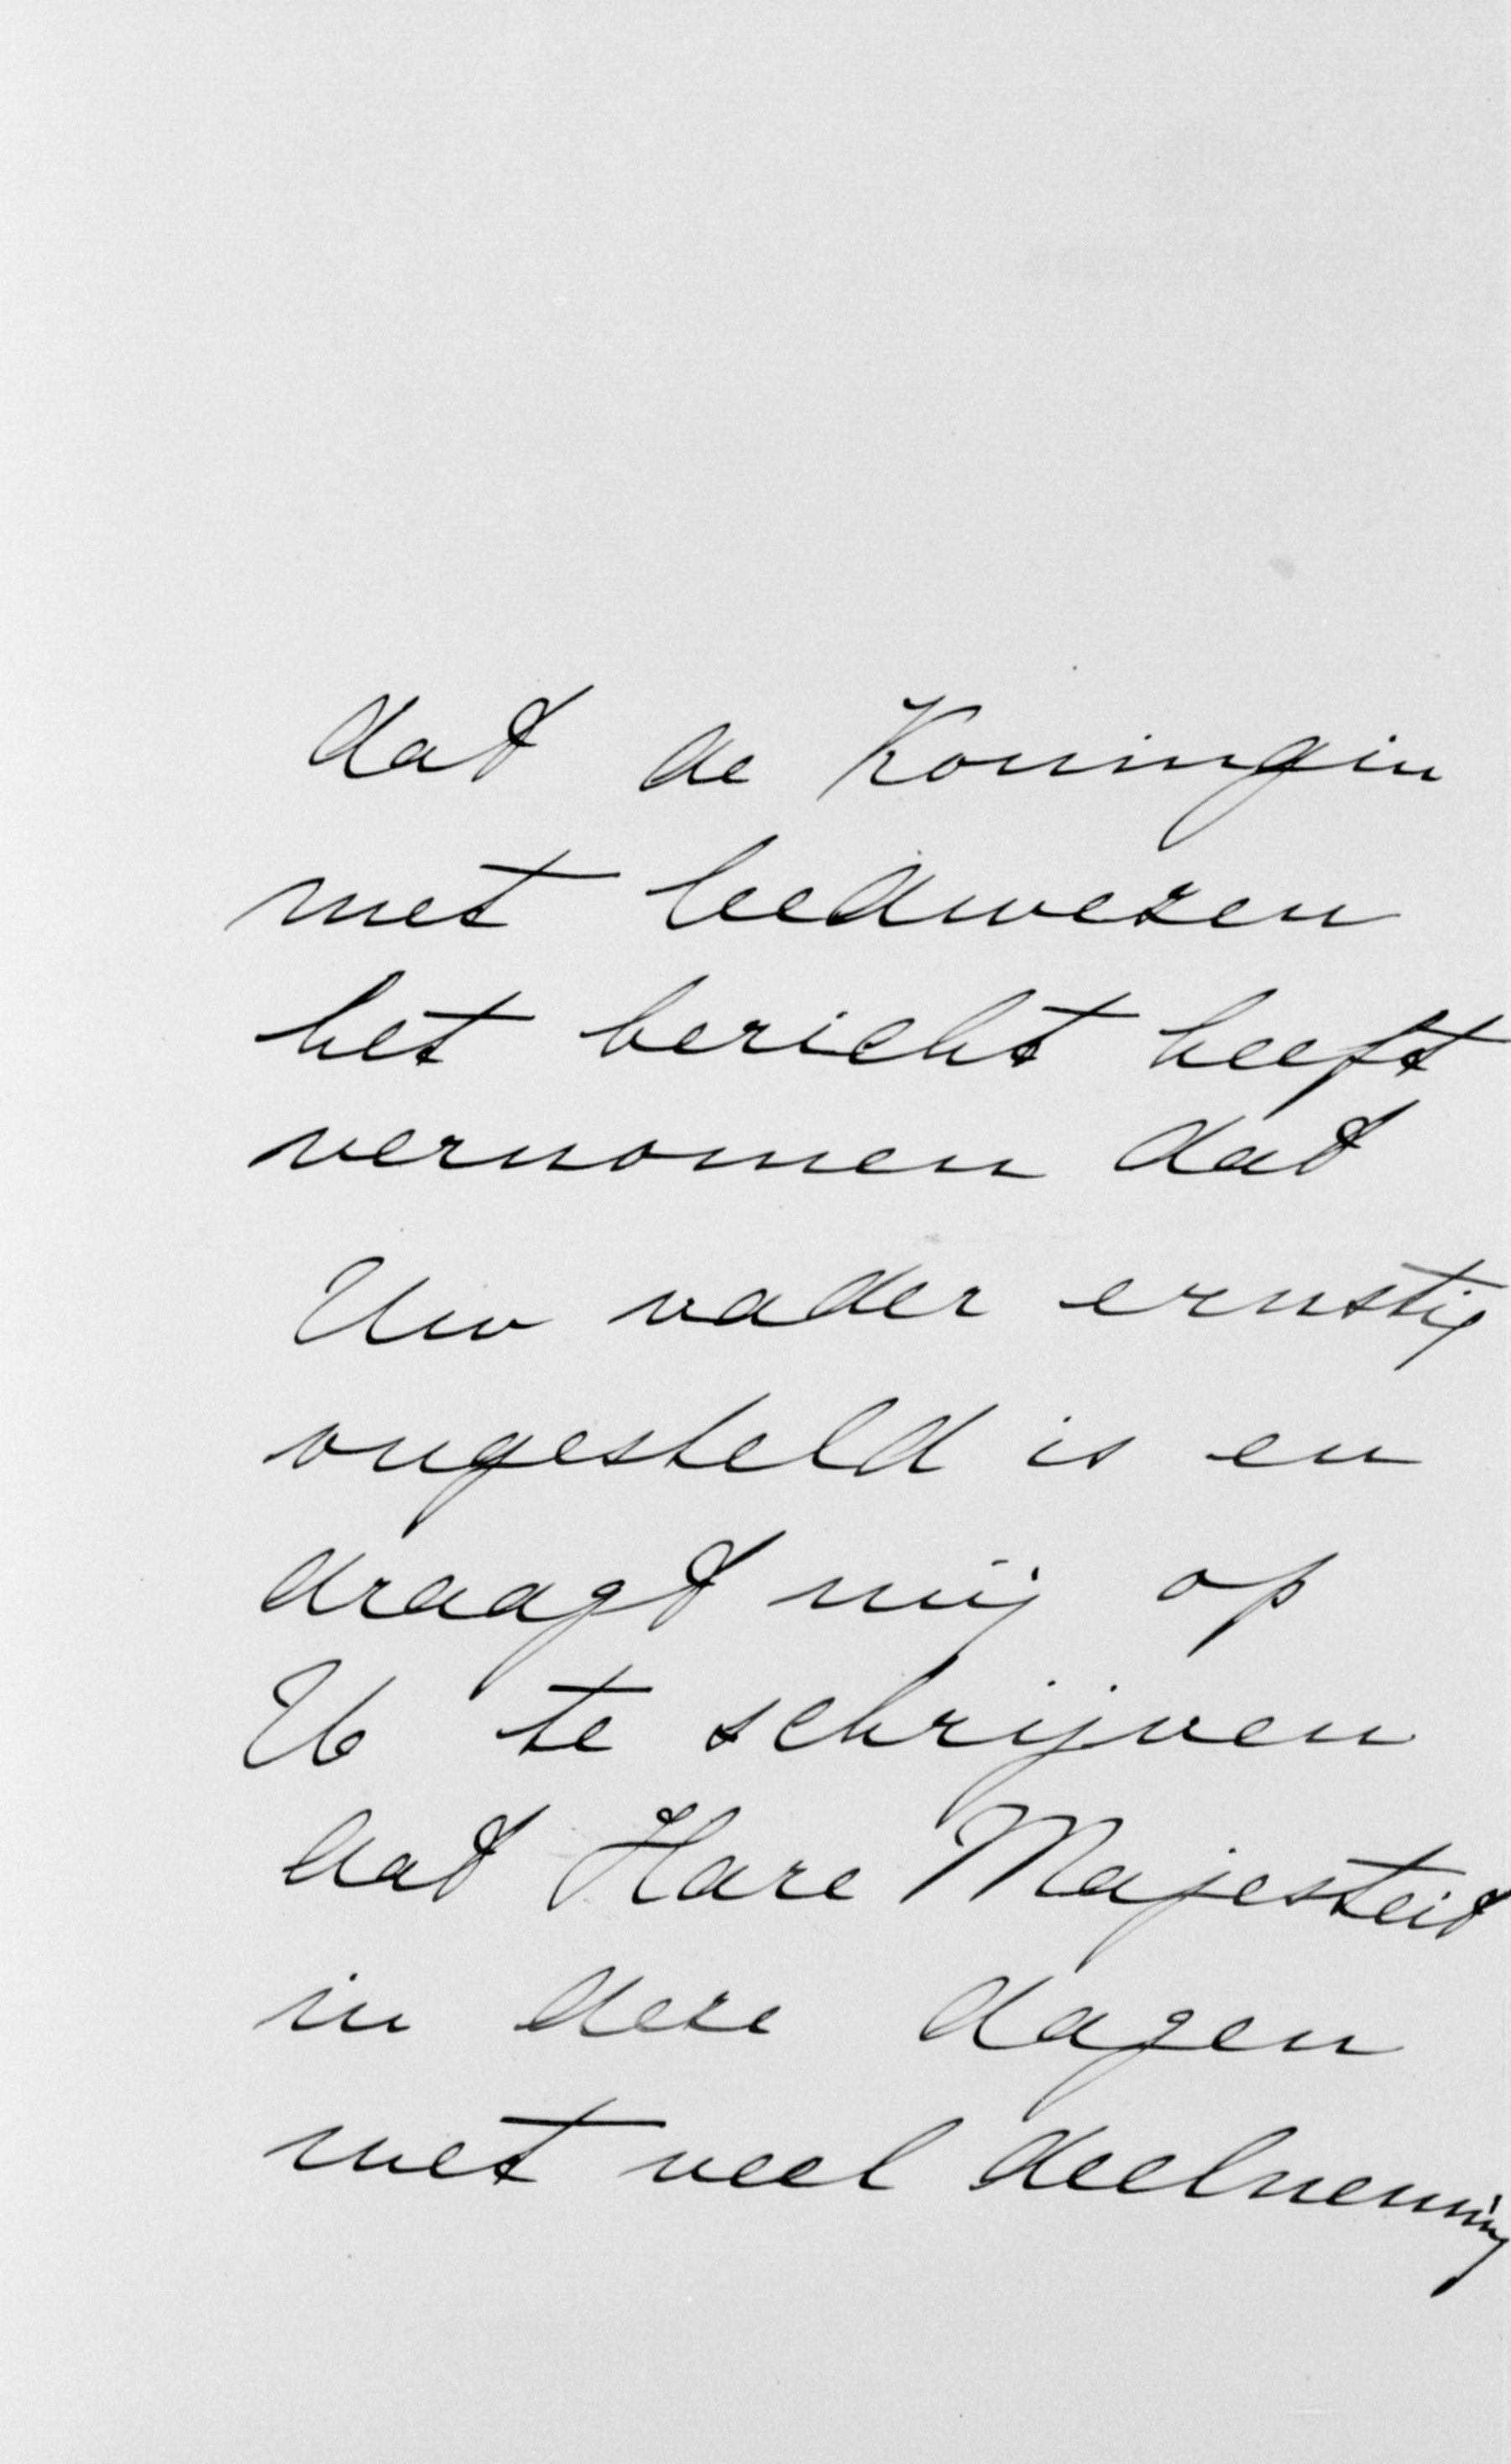 dat de Koningin
met leedwezen
het bericht heeft
vernomen dat
Uw vader ernstig
ongesteld is en
draagt mij op
U te schrijven
dat Hare Majesteit
in deze dagen
met veel deelneming